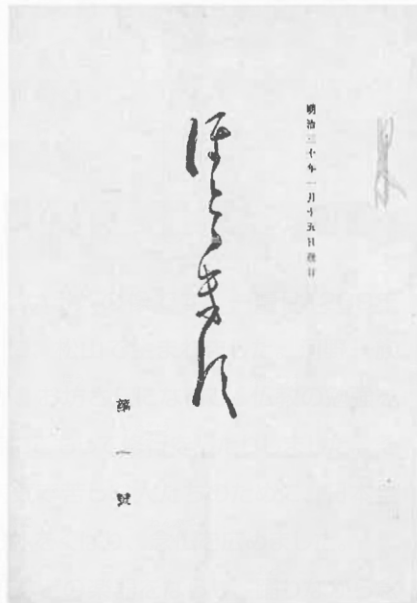 明治三十年一月十五日發行
ほとゝぎす
第一號